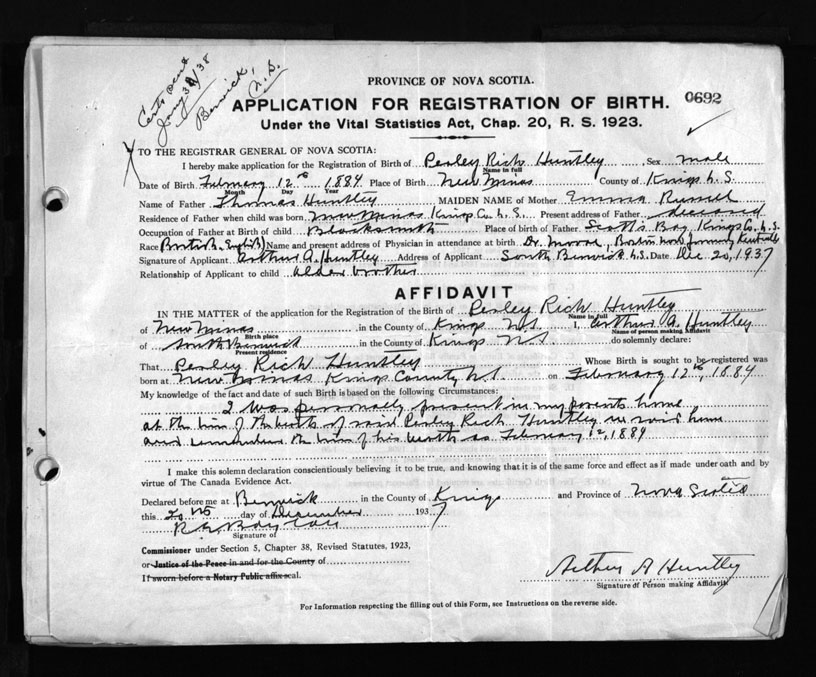 Certs sent
Jany 31/38
Berwick,
N.S.
PROVINCE OF NOVA SCOTIA.
APPLICATION FOR REGISTRATION OF BIRTH. 0692
Under the Vital Statistics Act, Chap. 20, R. S. 1923.
TO THE REGISTRAR GENERAL OF NOVA SCOTIA:
I hereby make application for the Registration of Birth of Perley Rich Huntley Sex male
Name in full
Date of Birth February 12th 1884 Place of Birth New Minas County of Kings N.S.
Month Day Year
Name of Father Thomas Huntley MAIDEN NAME of Mother Emma Russell
Residence of Father when child was born, New Minas Kings Co. N.S. Present address of Father deceased
Occupation of Father at Birth of child Blacksmith Place of birth of Father Scott's Bay Kings Co. N.S.
Race British English Name and present address of Physician in attendance at birth Dr. Moore, formerly Kentville
Signature of Applicant Arthur A. Huntley Address of Applicant South Berwick N.S. Date Dec 20, 1937
Relationship of Applicant to child older brother
AFFIDAVIT
IN THE MATTER of the application for the Registration of the Birth of Perley Rich Huntley
Name in full
of New Minas in the County of Kings N.S. I, Arthur A. Huntley
Birth place Name of person making Affidavit
of South Berwick in the County of Kings N.S. do solemnly declare:
Present residence
That Perley Rich Huntley Whose Birth is sought to be registered was
born at New Minas Kings County N.S. on February 12th, 1884
My knowledge of the fact and date of such Birth is based on the following Circumstances:
I was personally present in my parents home
at the time of the birth of said Perley Rich Huntley in said home
and remember the time of his birth as February 12, 1884
I make this solemn declaration conscientiously believing it to be true, and knowing that it is of the same force and effect as if made under oath and by
virtue of The Canada Evidence Act.
Declared before me at Berwick in the County of Kings and Province of Nova Scotia
this 20th day of December 1937
Signature of
Commissioner under Section 5, Chapter 38, Revised Statutes, 1923,
or Justice of the Peace in and for the County of
If sworn before a Notary Public affix seal.
Arthur A Huntley
Signature of Person making Affidavit
For Information respecting the filling out of this Form, see Instructions on the reverse side.